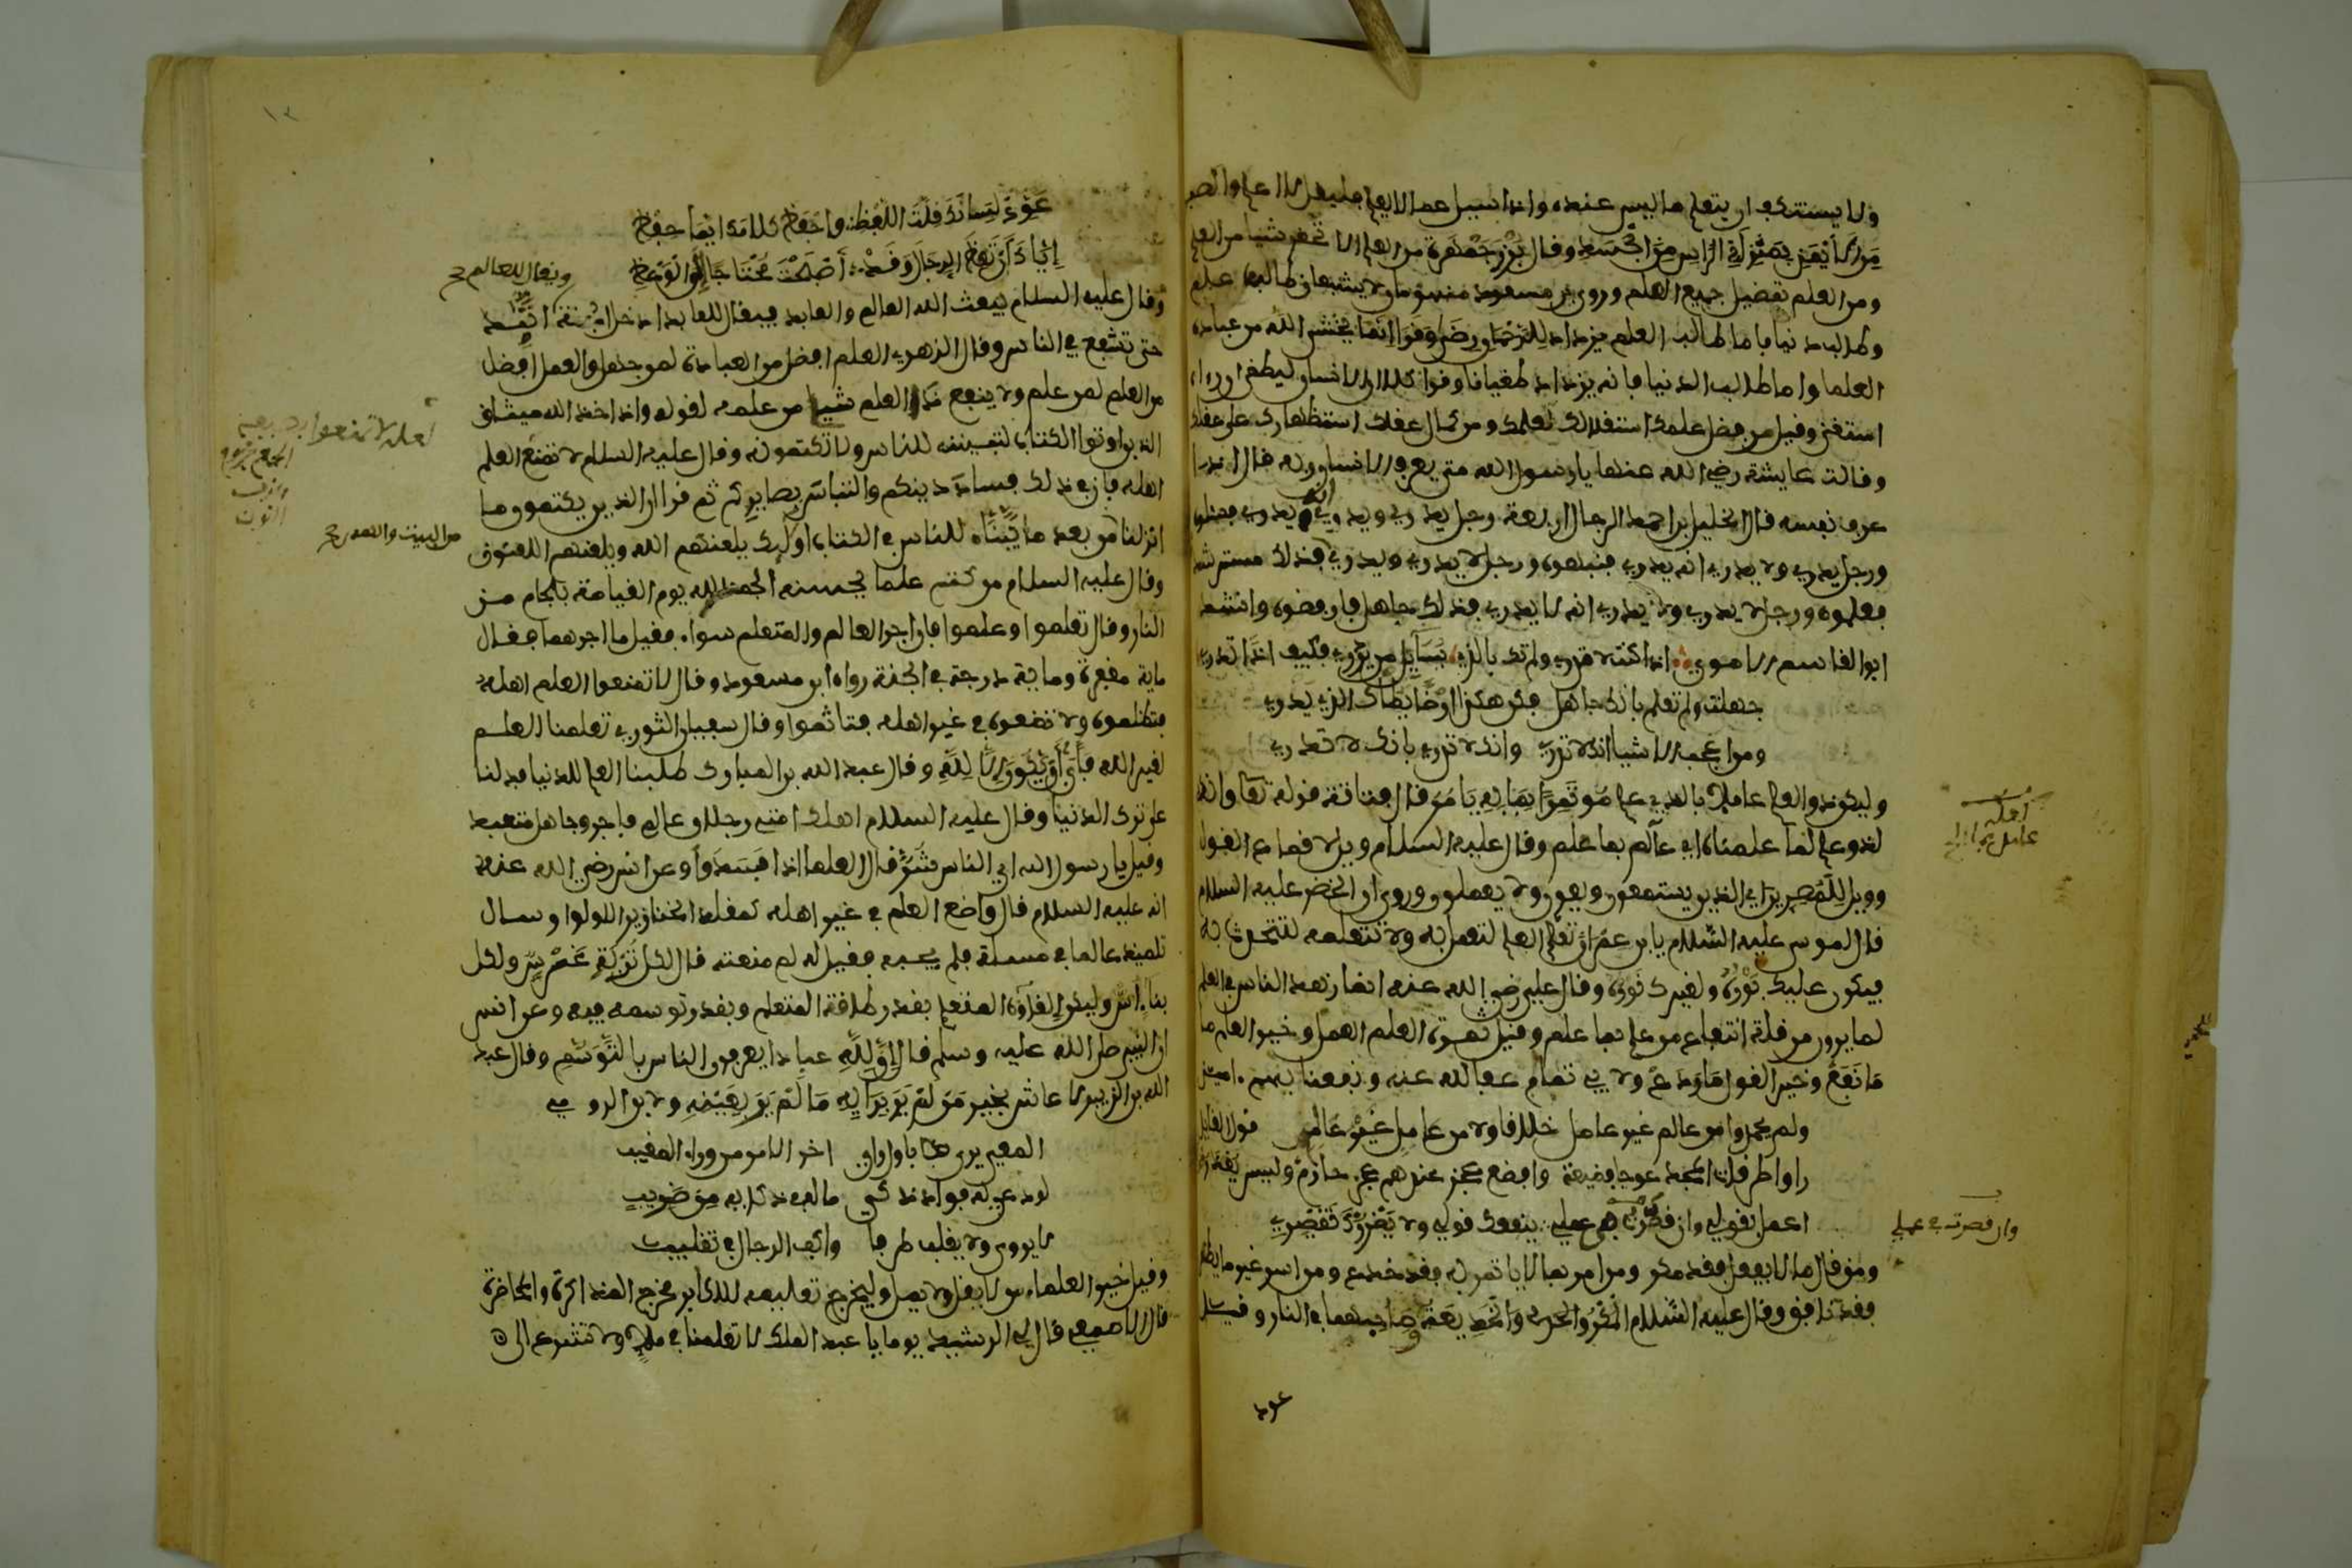 ولا يستنكف ان يتعلم ما ليس عنده واذا سئل عما لا يعلم فليقل لا اعلم والصبر
من الايمن بمنزلة الراس من الجسد وقال بزرجمهر من العلم الا تحقر شيا من العلم
ومن العلم تفضيل جميع العلم وروي بن مسعود منهومان لا يشبعان طالب علم
وطالب دنيا فاما طالب العلم فيزداد للرحمان رضى وقرا انما يخشى الله من عباده
العلما واما طالب الدنيا فانه يزداد طغيانا وقرا كلا ان الانسان ليطغى ان رءاه
استغنى وقيل من فضل علمك استقلالك لعلمك ومن كمال عقلك استظهارك على عقلك
وقالت عايشة رضي الله عنها يا رسول الله متى يعرف الانسان ربه قال اذا
عرف نفسه قال الخليل بن احمد الرجال اربعة رجل يدري ويدري انه يدري فسئلوه
ورجل يدري ولا يدري انه يدري فنبهوه ورجل لا يدري ويدري فذلك مسترشد
فعلموه ورجل لا يدري ولا يدري انه لا يدري فذلك جاهل فارفضوه وانشد
ابو القاسم الاموي اذا كنت لا تدري ولم تك بالذي يسايل من يدري فكيف اذا تدري
جهلت ولم تعلم بانك جاهل فكن هكذا ارضا يطاك الذي يدري
ومن اعجب الاشيا انك لا تدري وانك لا تدري بانك لا تدري
وليكن ذو العلم عاملا بالذي علم موتمرا بما به يامر قال قتادة قوله تعالى وانه
لذو علم لما علمناه اي عالم بما علم وقال عليه السلام ويل لاقماع القول
وويل للمصرين اي الذين يستمعون ويعون ولا يعملون وروي ان الخضر عليه السلام
قال لموسى عليه السلام يا بن عمران تعلم العلم لتعمل به ولا تتعلمه لتتحدث به
فيكون عليك بوره ولغيرك نوره وقال علي رضي الله عنه انما زهد الناس في العلم
لما يرون من قلة انتفاع من علم بما علم وقيل ثمرة العلم العمل وخير العلم ما
ما نفع وخير القول ما ودع ولابي تمام عفا الله عنه ونفعنا بهم ءامين
ولم يحمدوا من عالم غير عامل خلافا ولا من عامل غير عالم قول القايل
راوا طرقات المجد عوجا فضيعة وافضع عجز عندهم عجز حازم وليس يغدره
اعمل بقولي وان قصرت في عملي ينفعك قولي ولا يضررك تقصري
ومن قال ما لا يفعل فقد مكر ومن امر بما لا ياتمر به فقد خدع ومن اسر غير ما يظهر
فقد نافق وقال عليه السلام المكر والخديعة وصاحبهما في النار وقيل
عود
اهل
عامل بما
وان قصرت في عملي
عود لسانك قلة اللفظ واحفظ كلامك ايما حفظ
اياك ان تعظ الرجال وقد اصبحت محتاجا الى الوعظ
وقال عليه السلام يبعث الله العالم والعابد فيقال للعابد ادخل الجنة اتيد
حتى تشفع في الناس وقال الزهري العلم افضل من العبادة لمن جهل والعمل افضل
من العلم لمن علم ولا يمنع ذا العلم شيا من علمه لقوله واذ اخذ الله ميثاق
الذين اوتوا الكتاب لتبيننه للناس ولا تكتمونه وقال عليه السلام لا تمنع العلم
اهله فان في ذلك فساد دينكم والتباس بصايركم ثم قرا ان الذين يكتمون ما
انزلنا من بعد ما بيناه للناس في الكتاب اولئك يلعنهم الله ويلعنهم اللعنون
وقال عليه السلام من كتم علما يحسنه الجمه الله يوم القيامة بلجام من
النار وقال تعلموا وعلموا فان اجر العالم والمتعلم سواء فقيل ما اجرهما فقال
ماية مغفرة وماية درجة في الجنة رواه ابن مسعود وقال لا تمنعوا العلم اهله
فتظلموه ولا تضعوه في غير اهله فتاثموا وقال سفيان الثوري تعلمنا العلم
لغير الله فابى ان يكون الا لله وقال عبد الله بن المبارك طلبنا العلم للدنيا فدلنا
على ترك الدنيا وقال عليه السلام اهلك امتي رجلان عالم فاجر وجاهل متعبد
وقيل يا رسول الله اي الناس شر قال العلما اذا فسدوا وعن انس رضي الله عنه
انه عليه السلام قال واضع العلم في غير اهله كمقلد الخنازير اللولوا وسال
تلميذ عالما في مسئلة فلم يجبه فقيل له لم منعته قال لكل تربة غرس ولكل
بناء اس وليكن القاوه المتعلم بقدر طاقة المتعلم وبقدر توسمه فيه وعن انس
ان النبي صلى الله عليه وسلم قال ان لله عبادا يعرفون الناس بالتوسم وقال عبد
الله بن الزبير لا عاش بخير من لم ير برايه ما لم ير بعينه ولابن الرومي
المعي يرى باول راي اخر الامر من وراء المغيب
لوذعي له فواد ذكي ما له في ذكايه من ضريب
لا يروي ولا يقلب طرفا واكف الرجال في تقليب
وقيل خير العلماء من لا يقل ولا يمل وليخرج تعليمه للاكابر مخرج المذاكرة والمحاضرة
قال الاصمعي قال لي الرشيد يوما يا عبد الملك لا تعلمنا في ملا ولا تتسرع الى
ويقال للعالم
لعله لا تمنعوا
الجمع
النون
من البينت والهدى
١٢